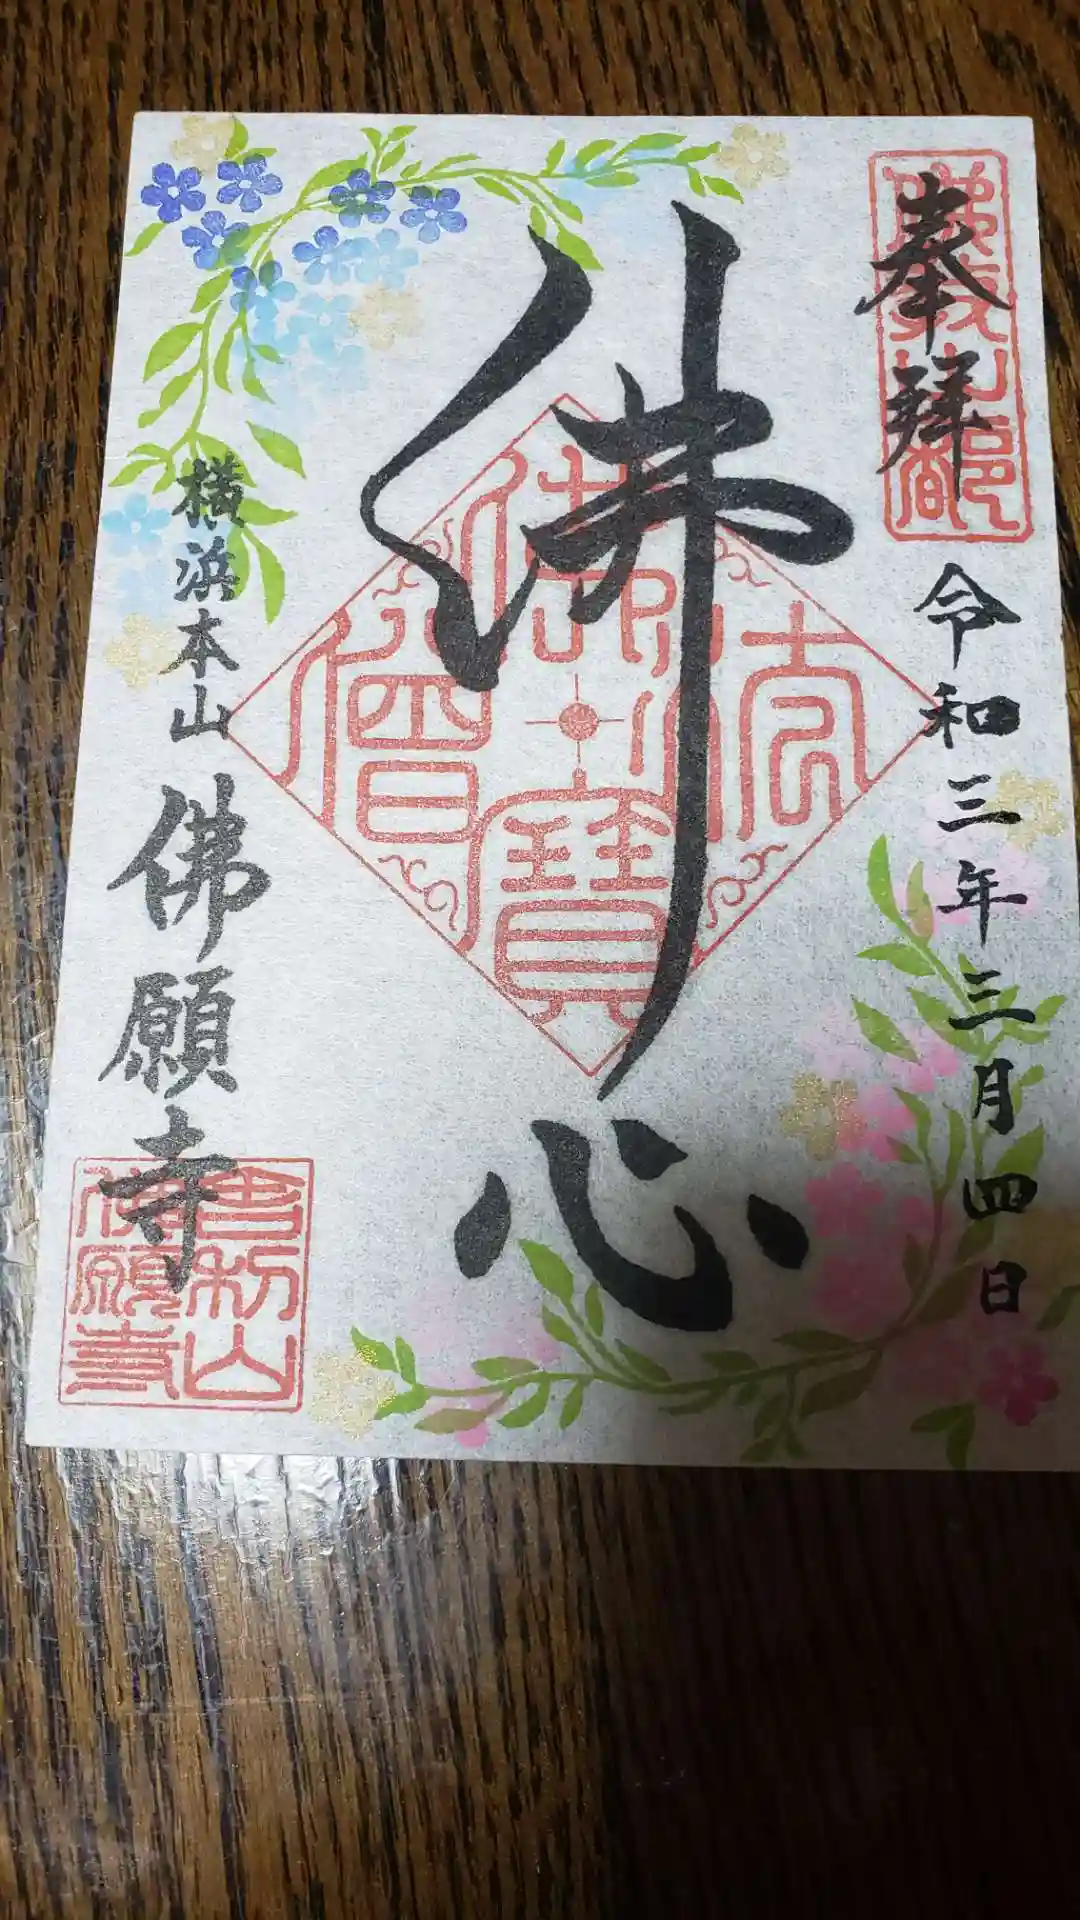 奉拝
令和三年三月四日
佛心
佛法僧寳
横浜本山
佛願寺
舎利山
佛願寺